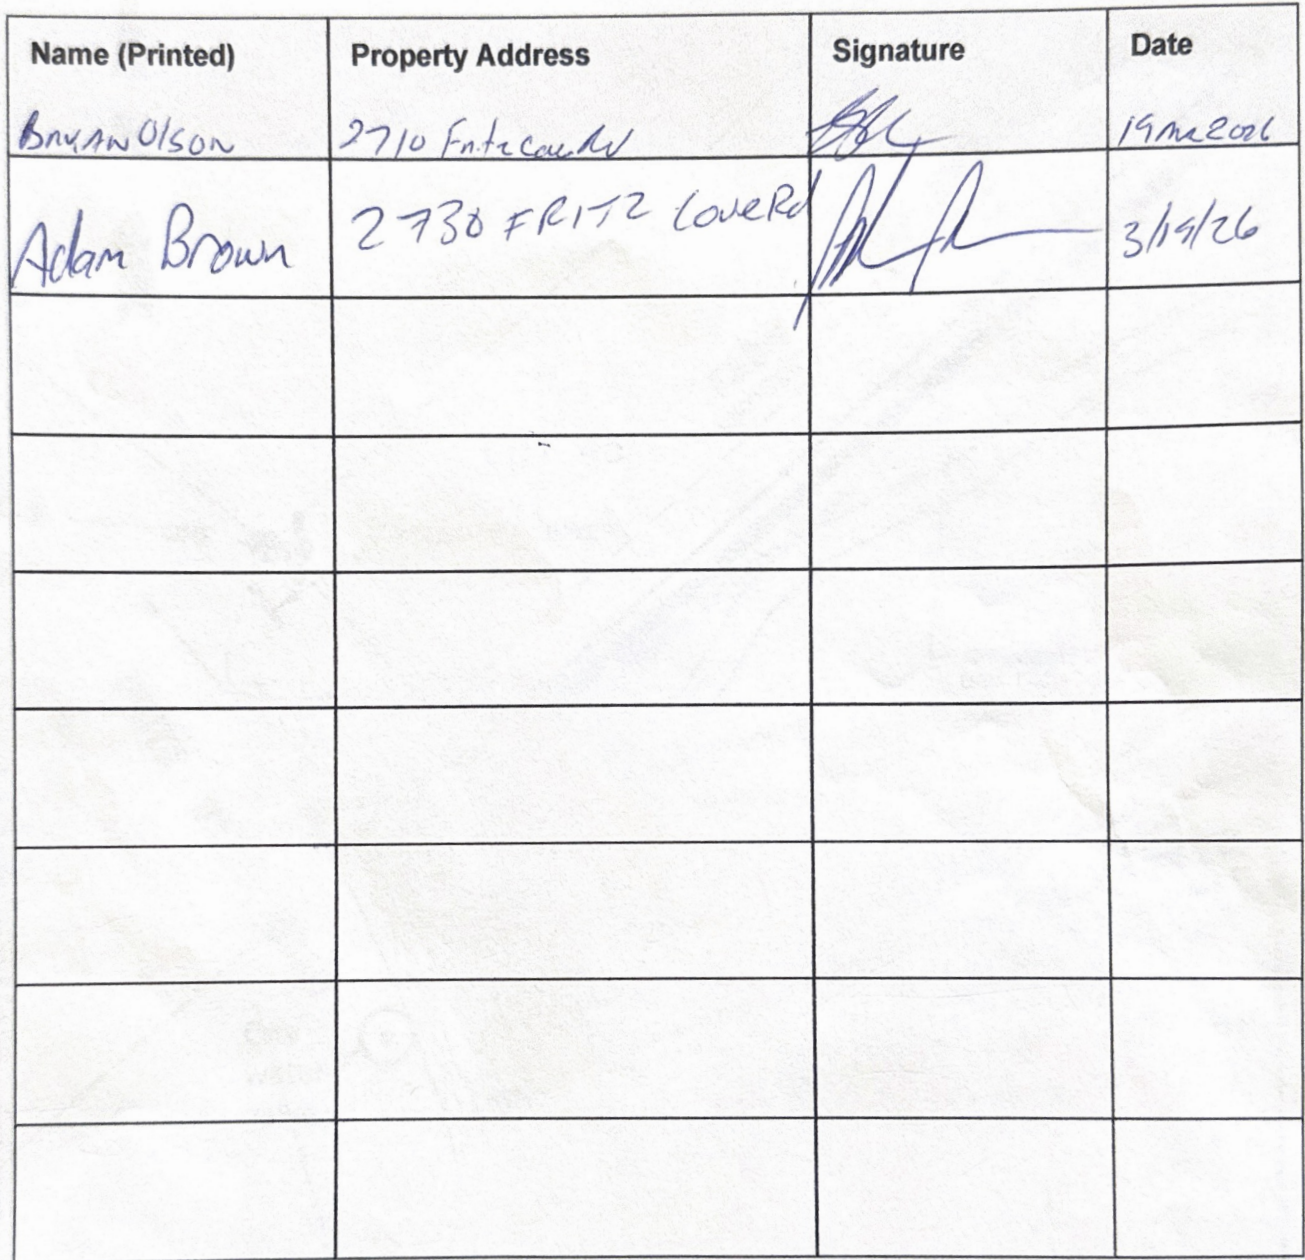 Name (Printed) Property Address Signature Date
Bryan Olson 2710 Fritz Cove Rd 19 Mar 2026
Adam Brown 2730 FRITZ Cove Rd 3/19/26